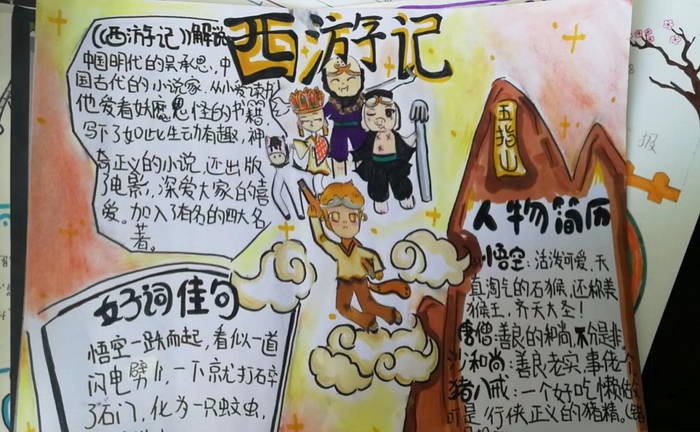 西游记
《《西游记》解说
中国明代的吴承恩,中
国古代的小说家,从小爱读
他爱看妖魔鬼怪的书籍
写下了如此生动有趣,神
奇正义的小说,还出版
了电影,深爱大家的喜
爱。加入了有名的四大名
著。
好词佳句
悟空一跃而起,看似一道
闪电劈下,一下就打碎
了石门,化为一只蚊虫,
五指山
人物简历
悟空:活泼可爱,天
真淘气的石猴,还称美
猴王,齐天大圣!
唐僧:善良的和尚,不分是非
沙和尚:善良老实,事佬个
猪八戒:一个好吃懒做
可是行侠正义的猪精。
报